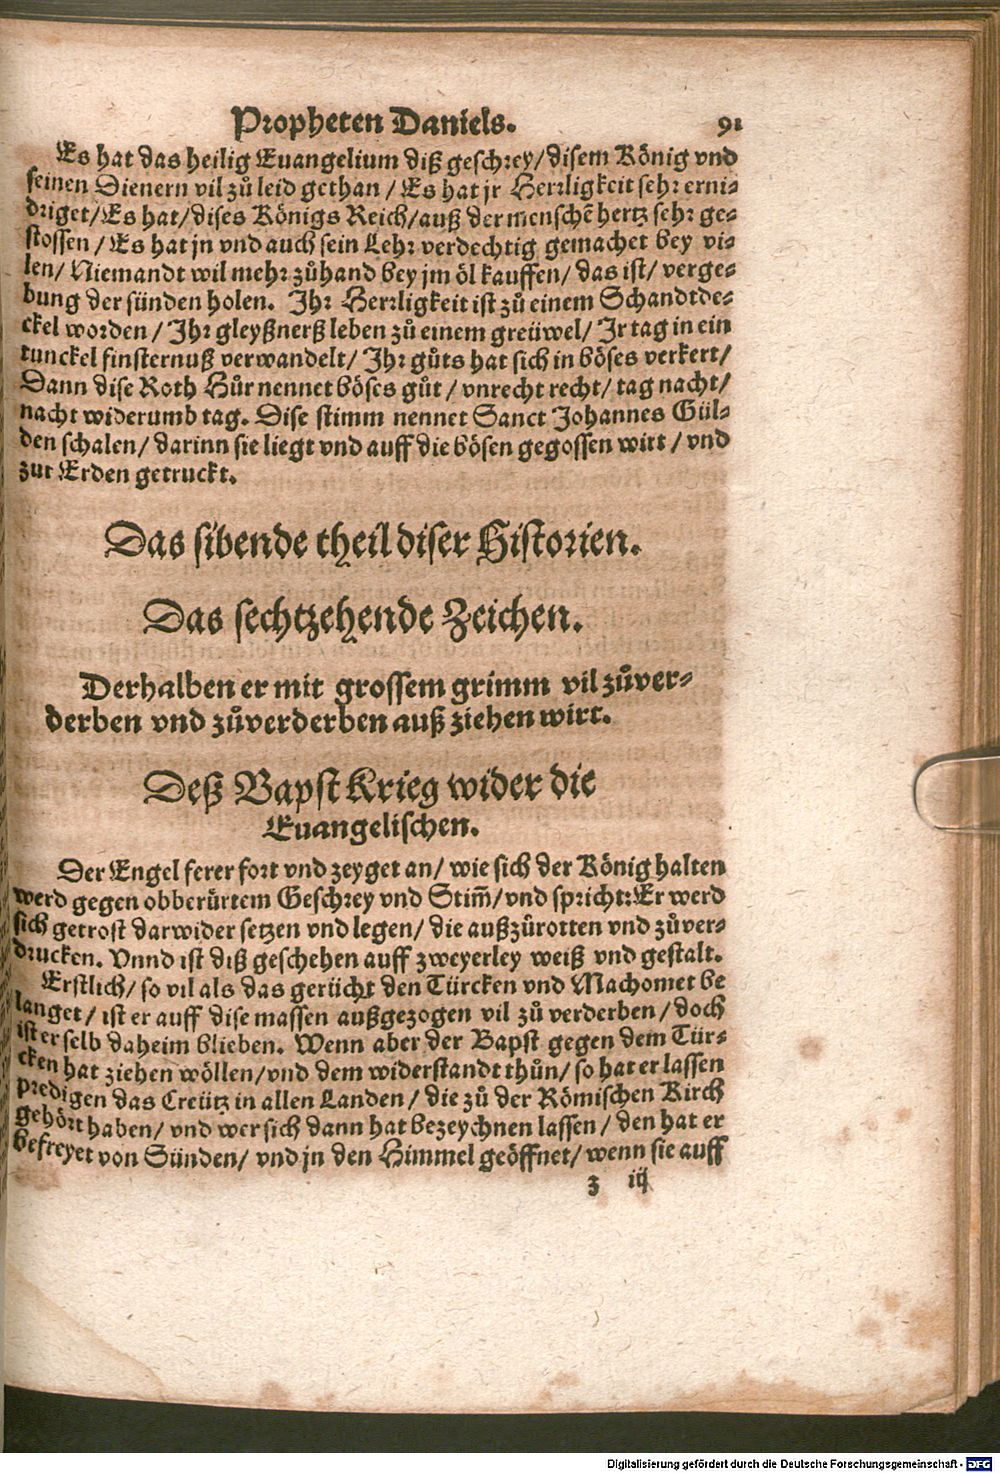 Propheten Daniels. 91
Es hat das heilig Euangelium diß geschrey/disem König vnd
seinen Dienern vil zů leid gethan / Es hat jr Herrligkeit sehr erni-
driget/Es hat/dises Königs Reich/auß der menschē hertz sehr ge-
stossen / Es hat jn vnd auch sein Lehr verdechtig gemachet bey vi-
len/ Niemandt wil mehr zůhand bey jm öl kauffen/ das ist/ verge-
bung der sünden holen. Ihr Herrligkeit ist zů einem Schandtde-
ckel worden / Ihr gleyßnerß leben zů einem greüwel/ Ir tag in ein
tunckel finsternuß verwandelt/ Ihr gůts hat sich in böses verkert/
Dann dise Roth Hůr nennet böses gůt / vnrecht recht/ tag nacht/
nacht widerumb tag. Dise stimm nennet Sanct Johannes Gül-
den schalen/ darinn sie liegt vnd auff die bösen gegossen wirt / vnd
zur Erden getruckt.
Das sibende theil diser Historien.
Das sechtzehende Zeichen.
Derhalben er mit grossem grimm vil zůver-
derben vnd zůverderben auß ziehen wirt.
Deß Bapst Krieg wider die
Euangelischen.
Der Engel ferer fort vnd zeyget an/ wie sich der König halten
werd gegen obberürtem Geschrey vnd Stim̃/vnd spricht: Er werd
sich getrost darwider setzen vnd legen/ die außzůrotten vnd zůver-
drucken. Vnnd ist diß geschehen auff zweyerley weiß vnd gestalt.
Erstlich/ so vil als das gerücht den Türcken vnd Machomet be
langet/ ist er auff dise massen außgezogen vil zů verderben/ doch
ist er selb daheim blieben. Wenn aber der Bapst gegen dem Tür-
cken hat ziehen wöllen/vnd dem widerstandt thůn/ so hat er lassen
predigen das Creütz in allen Landen / die zů der Römischen Kirch
gehört haben/ vnd wer sich dann hat bezeychnen lassen/ den hat er
befreyet von Sünden/ vnd jn den Himmel geöffnet/ wenn sie auff
z iij
Digitalisierung gefördert durch die Deutsche Forschungsgemeinschaft - DFG